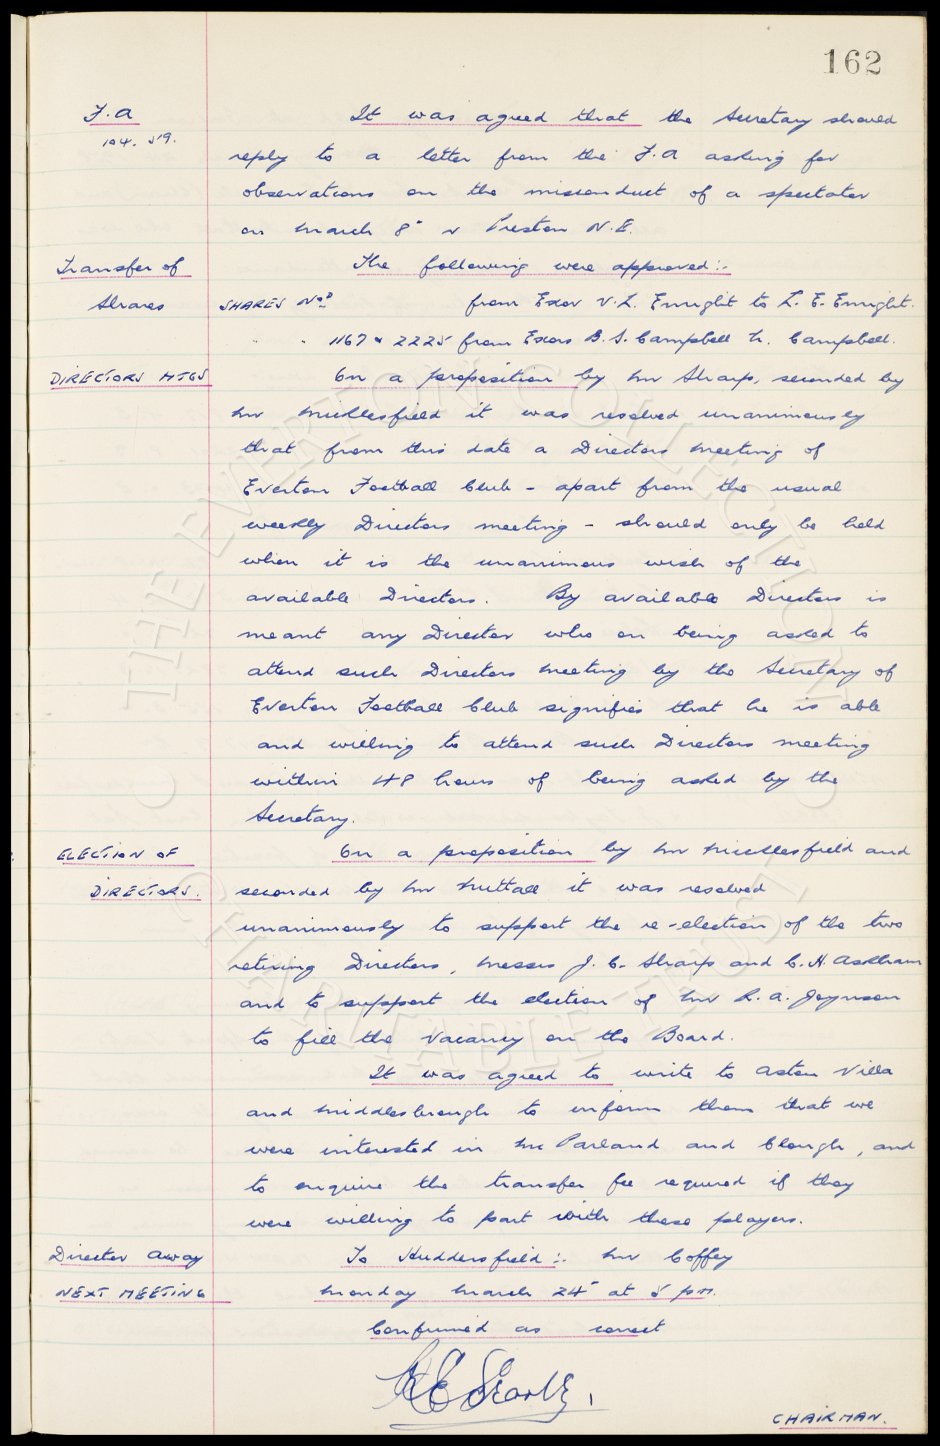 162
F.A It was agreed that the Secretary should
104. 519. reply to a letter from the F.A asking for
observations on the misconduct of a spectator
on March 8th v Preston N.E.
Transfer of The following were approved:-
Shares SHARES Nos from Exor V.L. Enright to L.E. Enright.
" " 1167 & 2225 from Exors B.S. Campbell h. Campbell.
DIRECTORS MTGS On a proposition by Mr Sharp, seconded by
Mr Micklesfield it was resolved unanimously
that from this date a Directors Meeting of
Everton Football Club - apart from the usual
weekly Directors meeting - should only be held
when it is the unanimous wish of the
available Directors. By available Directors is
meant any Director who on being asked to
attend such Directors Meeting by the Secretary of
Everton Football Club signifies that he is able
and willing to attend such Directors meeting
within 48 hours of being asked by the
Secretary.
ELECTION OF On a proposition by Mr Micklesfield and
DIRECTORS. seconded by Mr Nuttall it was resolved
unanimously to support the re-election of the two
retiring Directors, Messrs J.C. Sharp and C.H. Askham
and to support the election of Mr R.A. Joynson
to fill the vacancy on the Board.
It was agreed to write to Aston Villa
and Middlesbrough to inform them that we
were interested in McParland and Clough, and
to enquire the transfer fee required if they
were willing to part with these players.
Director Away To Huddersfield:- Mr Coffey
NEXT MEETING Monday March 24th at 5 pm.
Confirmed as correct
CHAIRMAN.
THE EVERTON COLLECTION
CHARITABLE TRUST